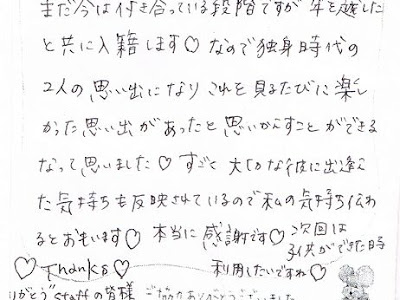 まだ今は付き合っている段階ですが 年を越した
と共に入籍します♡ なので独身時代の
2人の思い出になり これを見るたびに楽し
かった思い出があったと思いかえすことができる
なって思いました♡ すごく大切な彼に出逢え
た気持ちも反映されているので私の気持ち伝わ
るとおもいます♡ 本当に感謝です♡ 次回は
子供ができた時
♡ Thanks ♡ 利用したいですね♡
りがとう staffの皆様 ご協力ありがとうございました